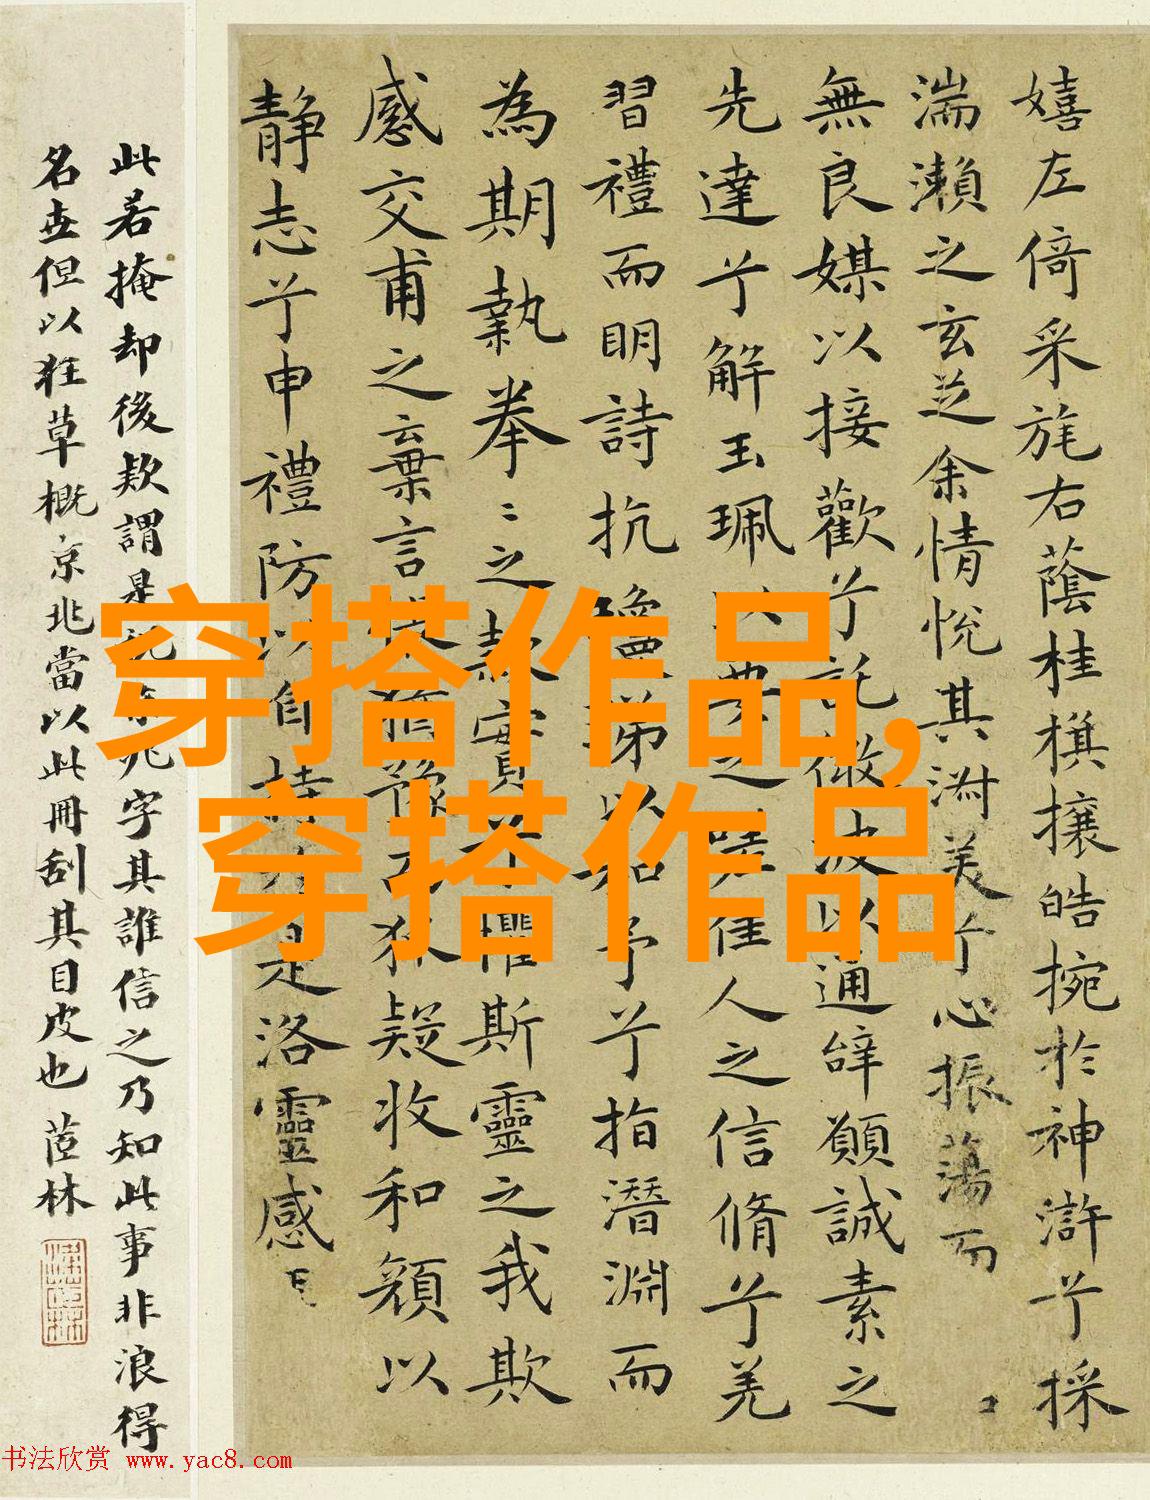 嬉左倚采旄右蔭桂旗攘皓捥於神滸兮採
湍瀨之玄芝余情悅其淑美兮心振蕩而
無良媒以接歡兮託微波以通辭願誠素之
先達兮解玉珮以要之嗟佳人之信脩兮羌
習禮而明詩抗瓊珶以和予兮指潛淵而
為期執拳〻之款實兮懼斯靈之我欺
感交甫之棄言悵猶豫而狐疑收和顏以
靜志兮申禮防以自持於是洛靈感
此若掩却後款謂是京兆字其誰信之乃知此事非浪得
名世但以狂草概京兆當以此冊刮其目皮也 茝林
穿搭作品,
穿搭作品
书法欣赏 www.yac8.com